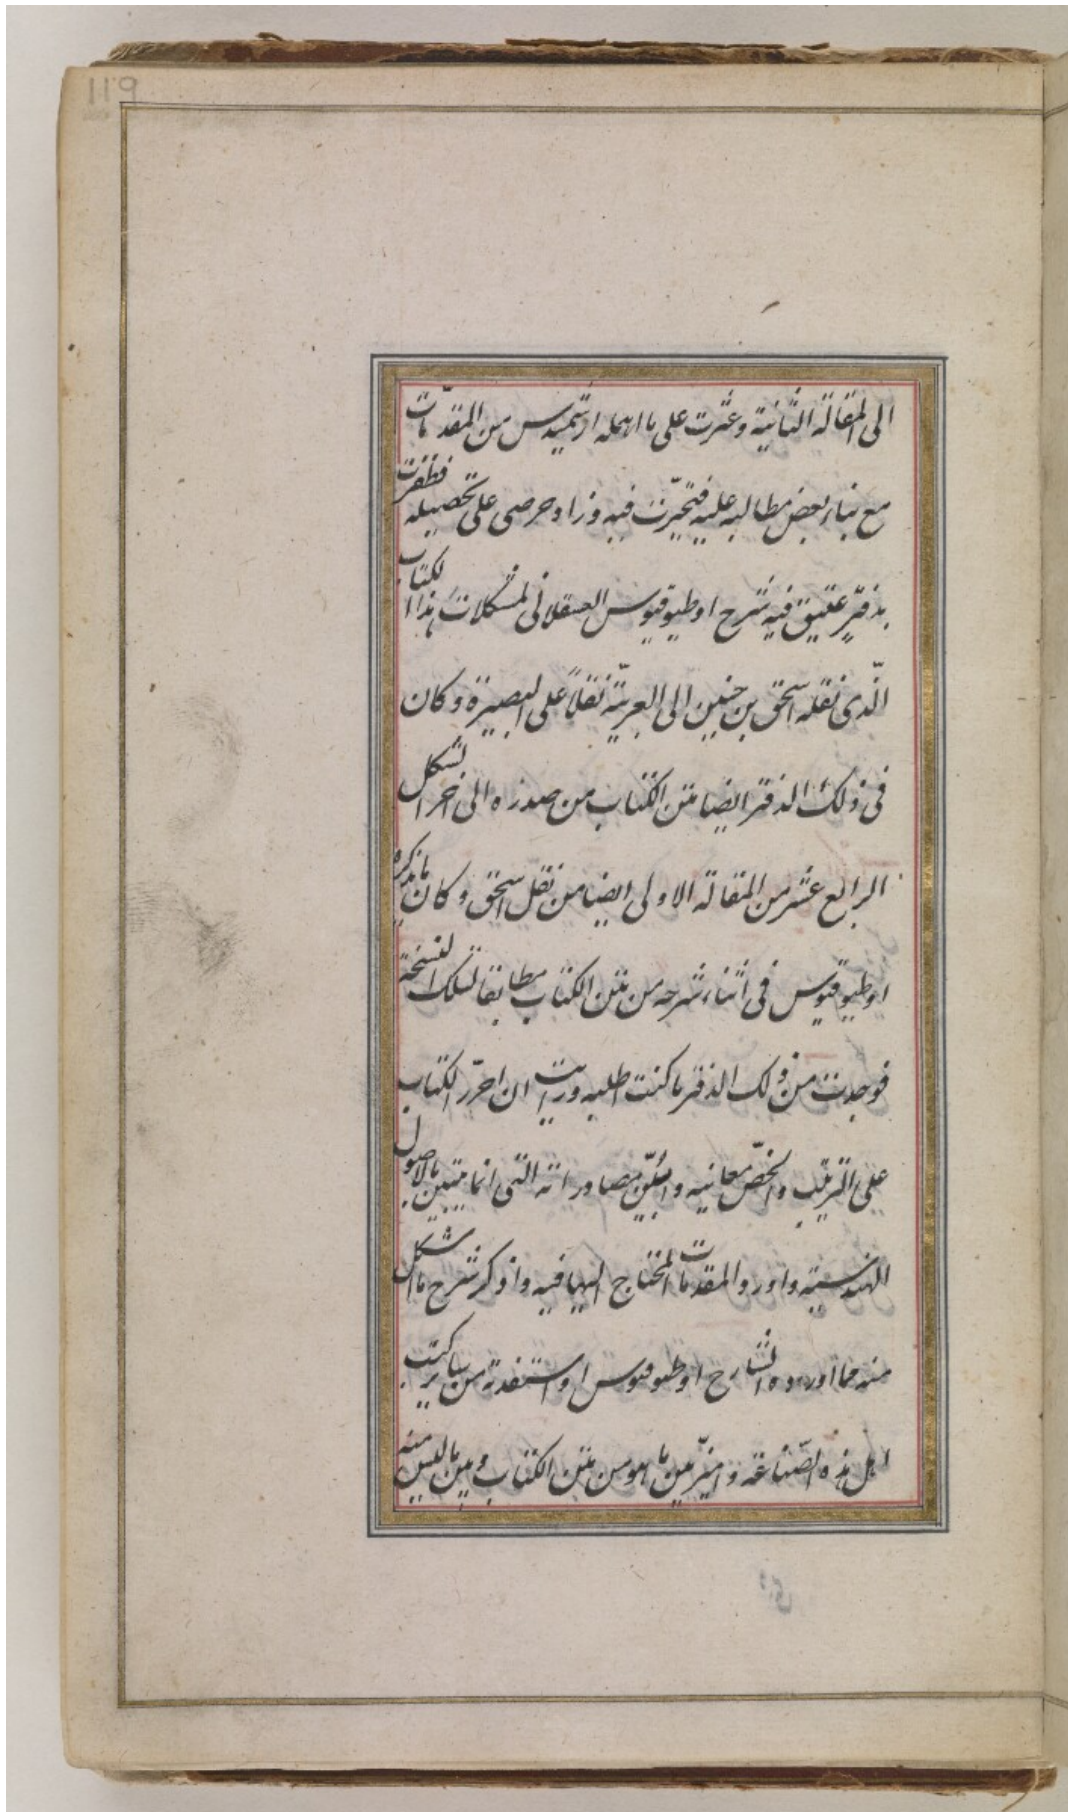 119
الى المقالة الثانية وعثرت على ما اهمله ارشميدس من المقدمات
مع بناء بعض مطالبه عليه فتحيّرت فيه وزاد حرصى على تحصيله فظفرت
بدفترٍ عتيق فيه شرح اوطيوقيوس العسقلانى لمشكلات هذا الكتاب
الّذى نقله اسحق بن حنين الى العربيّة نقلاً على البصيرة وكان
فى ذلك الدفتر ايضا متن الكتاب من صدره الى اخر الشكل
الرابع عشر من المقالة الاولى ايضا من نقل اسحق وكان ما يذكره
اوطيوقيوس فى اثناء شرحه من متن الكتاب مطابقا لتلك النسخة
فوجدت من ذلك الدفتر ما كنت اطلبه ورايت ان احرّر الكتاب
على الترتيب والخّص معانيه وابيّن مصادراته التى انما يتبيّن بالاصول
الهندسية واورد المقدمات المحتاج اليها فيه واذكر شرح ما اشكل
منه مما اورده الشارح اوطيوقيوس او استفدته من ساير كتب
اهل هذه الصّناعة وامّيز بين ما هو من متن الكتاب وبين ما ليس منه